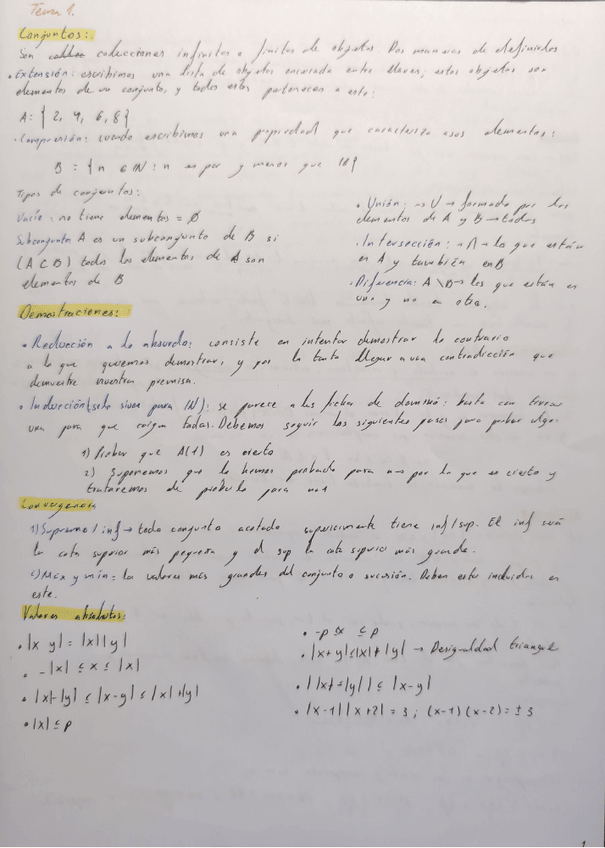 Tema 1.
Conjuntos:
Son colecciones infinitas o finitas de objetos Dos maneras de definirlos
• Extensión: escribimos una lista de objetos encerrada entre llaves; estos objetos son
elementos de un conjunto, y todos estos pertenecen a este:
A: { 2, 4, 6, 8 }
• Comprensión: cuando escribimos una propiedad que caracteriza esos elementos:
B = { n ∈ IN : n es par y menos que 10 }
Tipos de conjuntos:
Vacío: no tiene elementos = Ø
Subconjunto: A es un subconjunto de B si
(A ⊂ B) todos los elementos de A son
elementos de B
• Unión: → U → formado por los
elementos de A y B → todos
• Intersección: → ∩ → lo que están
en A y también en B
• Diferencia: A \ B → los que están en
uno y no en otra.
Demostraciones:
• Reducción a lo absurdo: consiste en intentar demostrar lo contrario
a lo que queremos demostrar, y por lo tanto llegar a una contradicción que
demuestre nuestra premisa.
• Inducción (solo sirve para IN): se parece a las fichas de dominó: basta con tirar
una para que caigan todas. Debemos seguir los siguientes pasos para probar algo:
1) Probar que A(1) es cierto
2) Suponemos que lo hemos probado para n → por lo que es cierto y
trataremos de probarlo para n+1
Convergencia
1) Supremo / inf → todo conjunto acotado superiormente tiene inf/sup. El inf será
la cota superior más pequeña y el sup la cota superior más grande.
2) Max y min: la valores más grandes del conjunto o sucesión. Deben estar incluidos en
este.
Valores absolutos:
• |x y| = |x||y|
• -|x| ≤ x ≤ |x|
• |x|-|y| ≤ |x-y| ≤ |x|+|y|
• |x| ≤ p
• -p ≤ x ≤ p
• |x+y| ≤ |x|+|y| → Desigualdad triangular
• ||x|-|y|| ≤ |x-y|
• |x-1||x+2| = 3 ; (x-1)(x-2) = ± 3
1